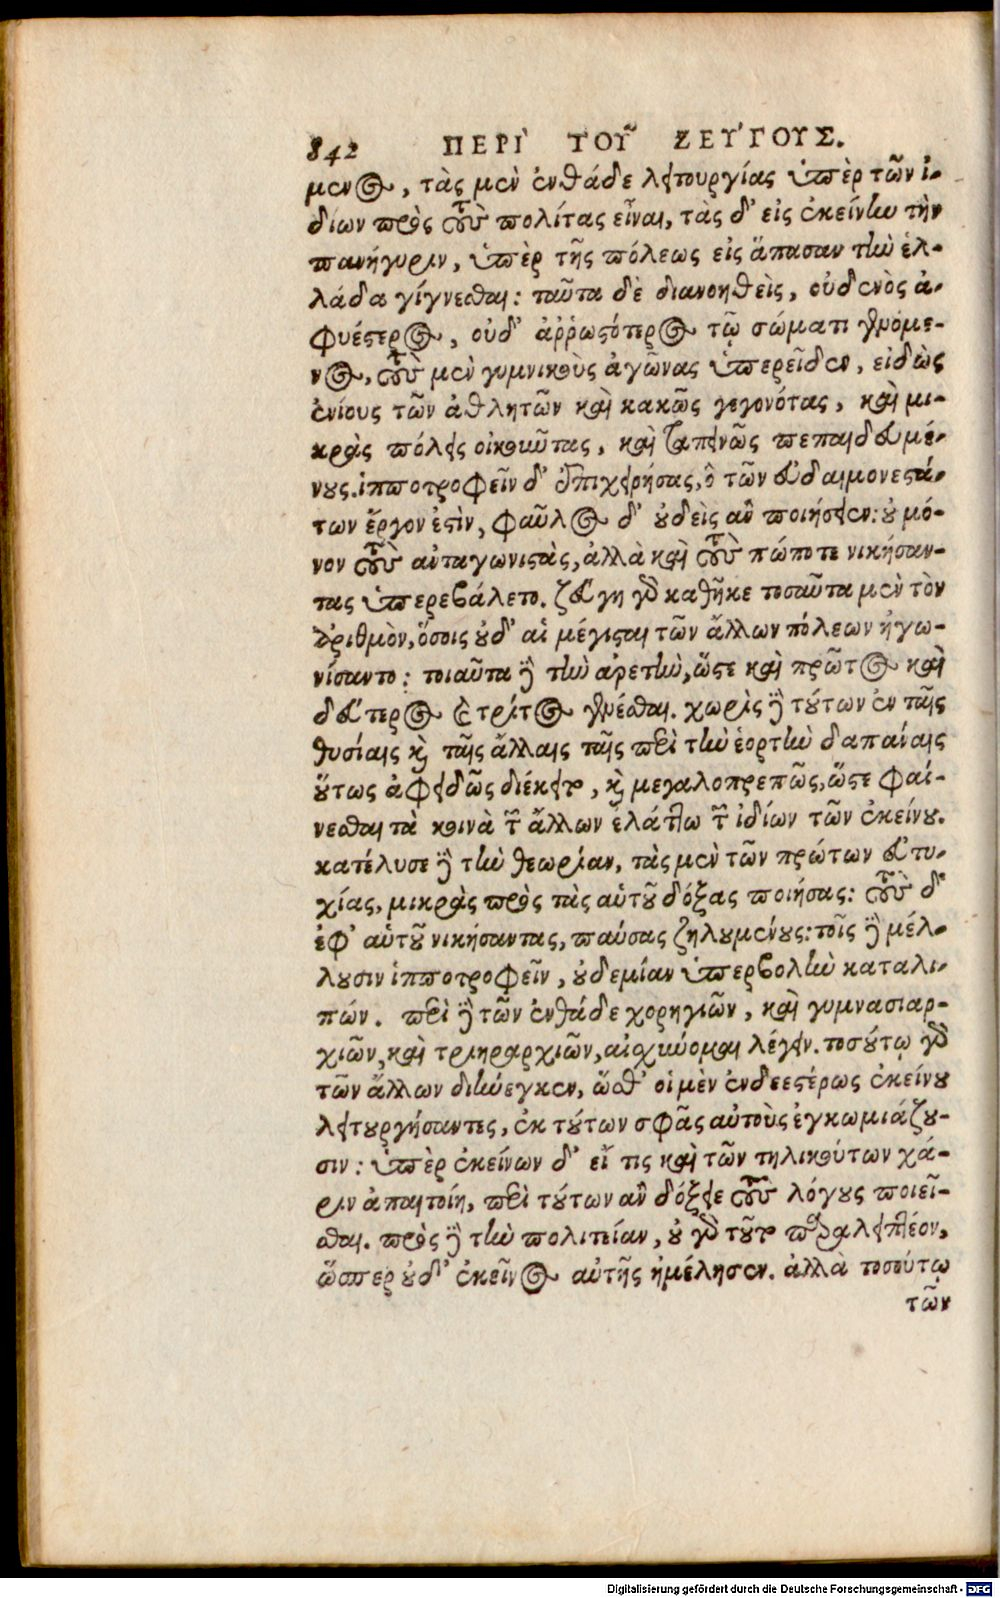 842 ΠΕΡΙ ΤΟΥ ΖΕΥΓΟΥΣ.
μενος, τὰς μὲν ἐνθάδε λειτουργίας ὑπὲρ τῶν ἰ-
δίων πρὸς τοὺς πολίτας εἶναι, τὰς δ' εἰς ἐκείνην τὴν
πανήγυριν, ὑπὲρ τῆς πόλεως εἰς ἅπασαν τὴν ἑλ-
λάδα γίγνεσθαι: ταῦτα δὲ διανοηθεὶς, οὐδενὸς ἀ-
φυέστερος, οὐδ' ἀῤῥωστότερος τῷ σώματι γενόμε-
νος, τοὺς μὲν γυμνικοὺς ἀγῶνας ὑπερεῖδεν, εἰδὼς
ἐνίους τῶν ἀθλητῶν καὶ κακῶς γεγονότας, καὶ μι-
κρὰς πόλεις οἰκοῦντας, καὶ ταπεινῶς πεπαιδευμέ-
νους. ἱπποτροφεῖν δ' ἐπιχειρήσας, ὃ τῶν εὐδαιμονεστά-
των ἔργον ἐστὶν, φαῦλος δ' οὐδεὶς ἂν ποιήσειεν: οὐ μό-
νον τοὺς ἀνταγωνιστὰς, ἀλλὰ καὶ τοὺς πώποτε νικήσαν-
τας ὑπερεβάλετο. ζεύγη γὰρ καθῆκε τοσαῦτα μὲν τὸν
ἀριθμὸν, ὅσοις οὐδ' αἱ μέγισται τῶν ἄλλων πόλεων ἠγω-
νίσαντο: τοιαῦτα δὲ τὴν ἀρετὴν, ὥστε καὶ πρῶτος καὶ
δεύτερος καὶ τρίτος γενέσθαι. χωρὶς δὲ τούτων ἐν ταῖς
θυσίαις καὶ ταῖς ἄλλαις ταῖς περὶ τὴν ἑορτὴν δαπάναις
οὕτως ἀφειδῶς διέκειτο, καὶ μεγαλοπρεπῶς, ὥστε φαί-
νεσθαι τὰ κοινὰ τῶν ἄλλων ἐλάττω τῶν ἰδίων τῶν ἐκείνου.
κατέλυσε δὲ τὴν θεωρίαν, τὰς μὲν τῶν πρώτων εὐτυ-
χίας, μικρὰς πρὸς τὰς αὑτοῦ δόξας ποιήσας: τοὺς δ'
ἐφ' αὑτοῦ νικήσαντας, παύσας ζηλουμένους: τοῖς δὲ μέλ-
λουσιν ἱπποτροφεῖν, οὐδεμίαν ὑπερβολὴν καταλι-
πών. περὶ δὲ τῶν ἐνθάδε χορηγιῶν, καὶ γυμνασιαρ-
χιῶν, καὶ τριηραρχιῶν, αἰσχύνομαι λέγειν. τοσούτῳ γὰρ
τῶν ἄλλων διήνεγκεν, ὥσθ' οἱ μὲν ἐνδεεστέρως ἐκείνου
λειτουργήσαντες, ἐκ τούτων σφᾶς αὐτοὺς ἐγκωμιάζου-
σιν: ὑπὲρ ἐκείνων δ' εἴ τις καὶ τῶν τηλικούτων χά-
ριν ἀπαιτοίη, περὶ τούτων ἂν δόξειε τοὺς λόγους ποιεῖ-
σθαι. πρὸς δὲ τὴν πολιτείαν, οὐ γὰρ τοῦτο παραλειπτέον,
ὥσπερ οὐδ' ἐκεῖνος αὐτῆς ἠμέλησεν. ἀλλὰ τοσούτῳ
τῶν
Digitalisierung gefördert durch die Deutsche Forschungsgemeinschaft - DFG